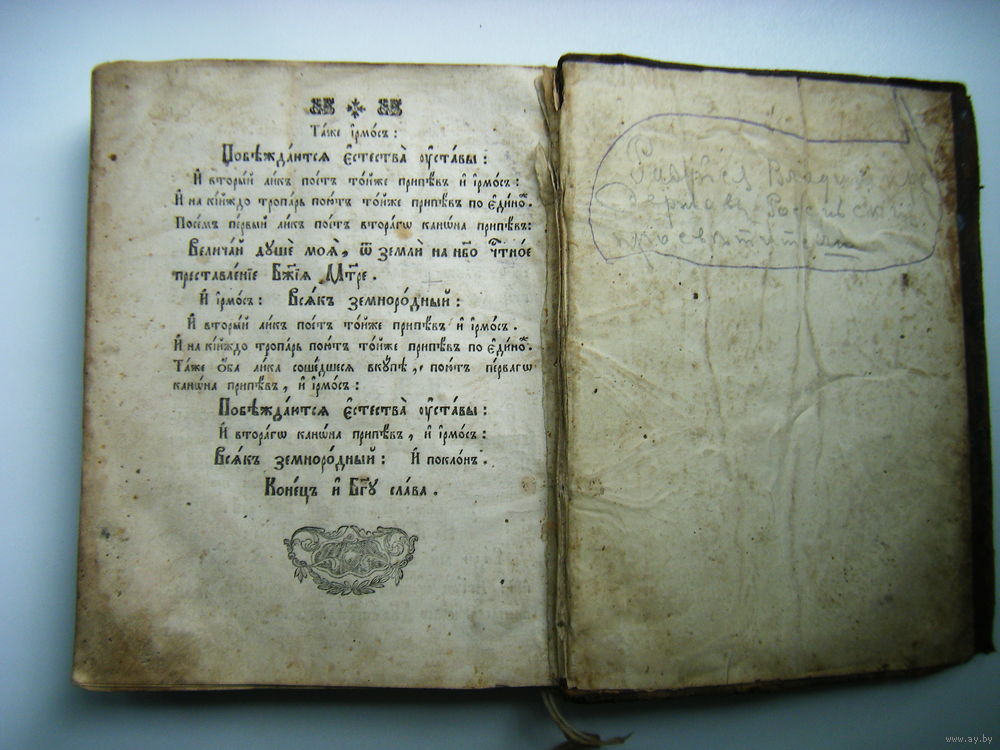 Та́же і҆рмо́съ :
Побѣжда́ются є҆стества̀ ᲂу҆ста́вы :
И҆ вторы́й ли́къ пою́тъ то́йже припѣ́въ и҆ і҆рмо́съ :
И҆ на кі́йждо тропа́рь пою́тъ то́йже припѣ́въ по є҆ди́ноⷤ.
Посе́мъ пе́рвый ли́къ пою́тъ втора́гѡ канѡ́на припѣ́въ:
Велича́й дꙋшѐ моѧ̀, ѿ землѝ на нб҃о чⷭ҇тно́е
преставле́нїе Бж҃їѧ Мт҃ре .
И҆ і҆рмо́съ : Всѧ́къ земноро́дный :
И҆ вторы́й ли́къ пою́тъ то́йже припѣ́въ и҆ і҆рмо́съ .
И҆ на кі́йждо тропа́рь пою́тъ то́йже припѣ́въ по є҆ди́ноⷤ.
Та́же ѻ҆́ба ли́ка соше́дшесѧ вкꙋ́пѣ , пою́тъ пе́рвагѡ
канѡ́на припѣ́въ , и҆ і҆рмо́съ :
Побѣжда́ются є҆стества̀ ᲂу҆ста́вы :
И҆ втора́гѡ канѡ́на припѣ́въ , и҆ і҆рмо́съ :
Всѧ́къ земноро́дный : И҆ покло́нъ .
Коне́цъ и҆ Бг҃ꙋ сла́ва .
Радуйся
державы Россійскія
www.ay.by